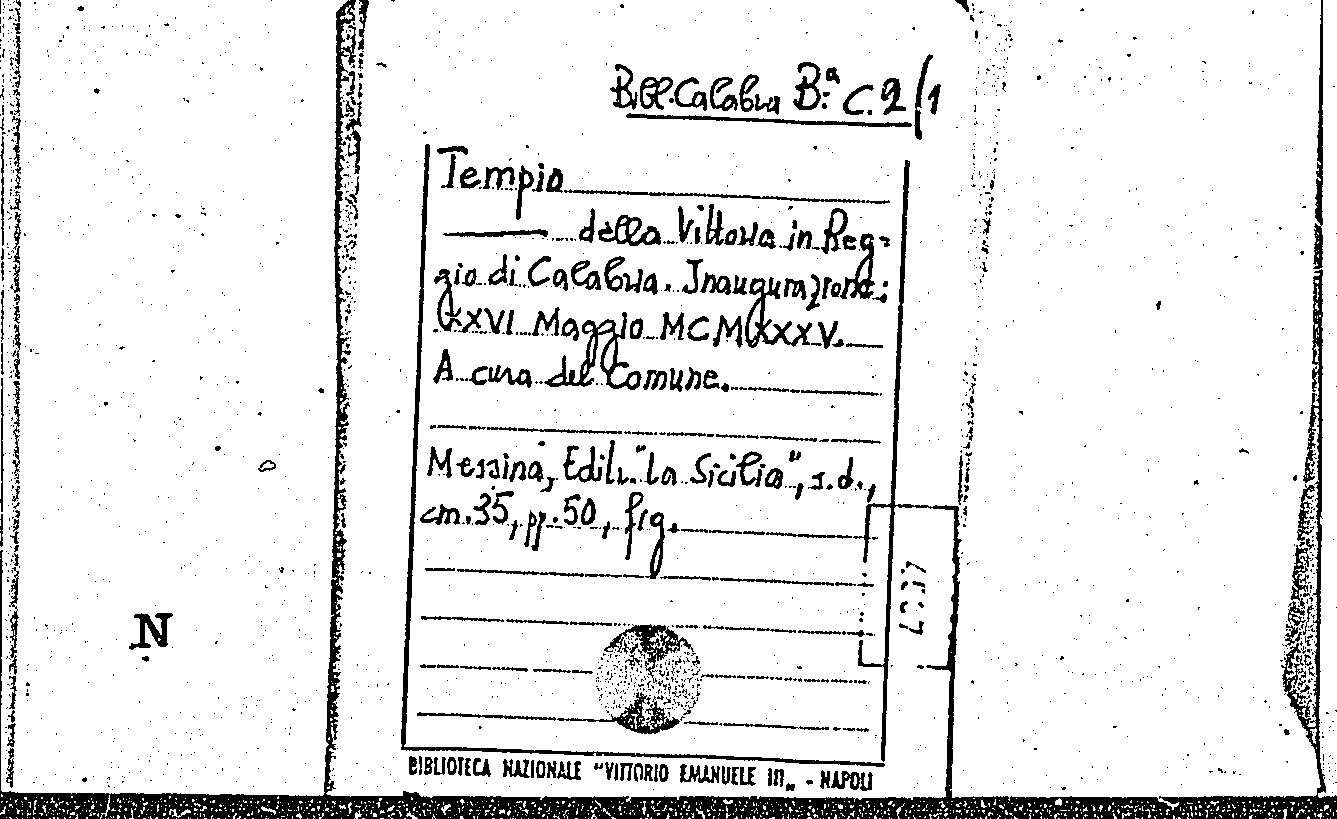 Bibl. Calabra B.ª C. 2/1
Tempio
——— della Vittoria in Reg-
gio di Calabria. Inaugurazione:
XXVI Maggio MCMXXXV.
A cura del Comune.
Messina, Ediz. "La Sicilia", s.d.,
cm. 35, pp. 50, fig.
N
BIBLIOTECA NAZIONALE "VITTORIO EMANUELE III„ - NAPOLI